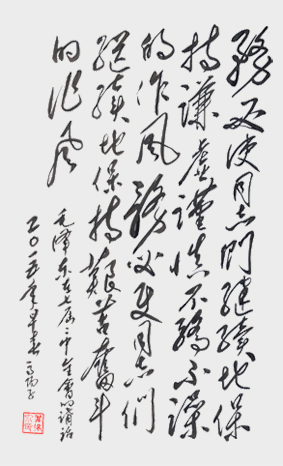 务必使同志们继续地保
持谦虚谨慎不骄不躁
的作风务必使同志們
继续地保持艰苦奋斗
的作风
毛泽东在七届二中全會的讲话
二〇一五年